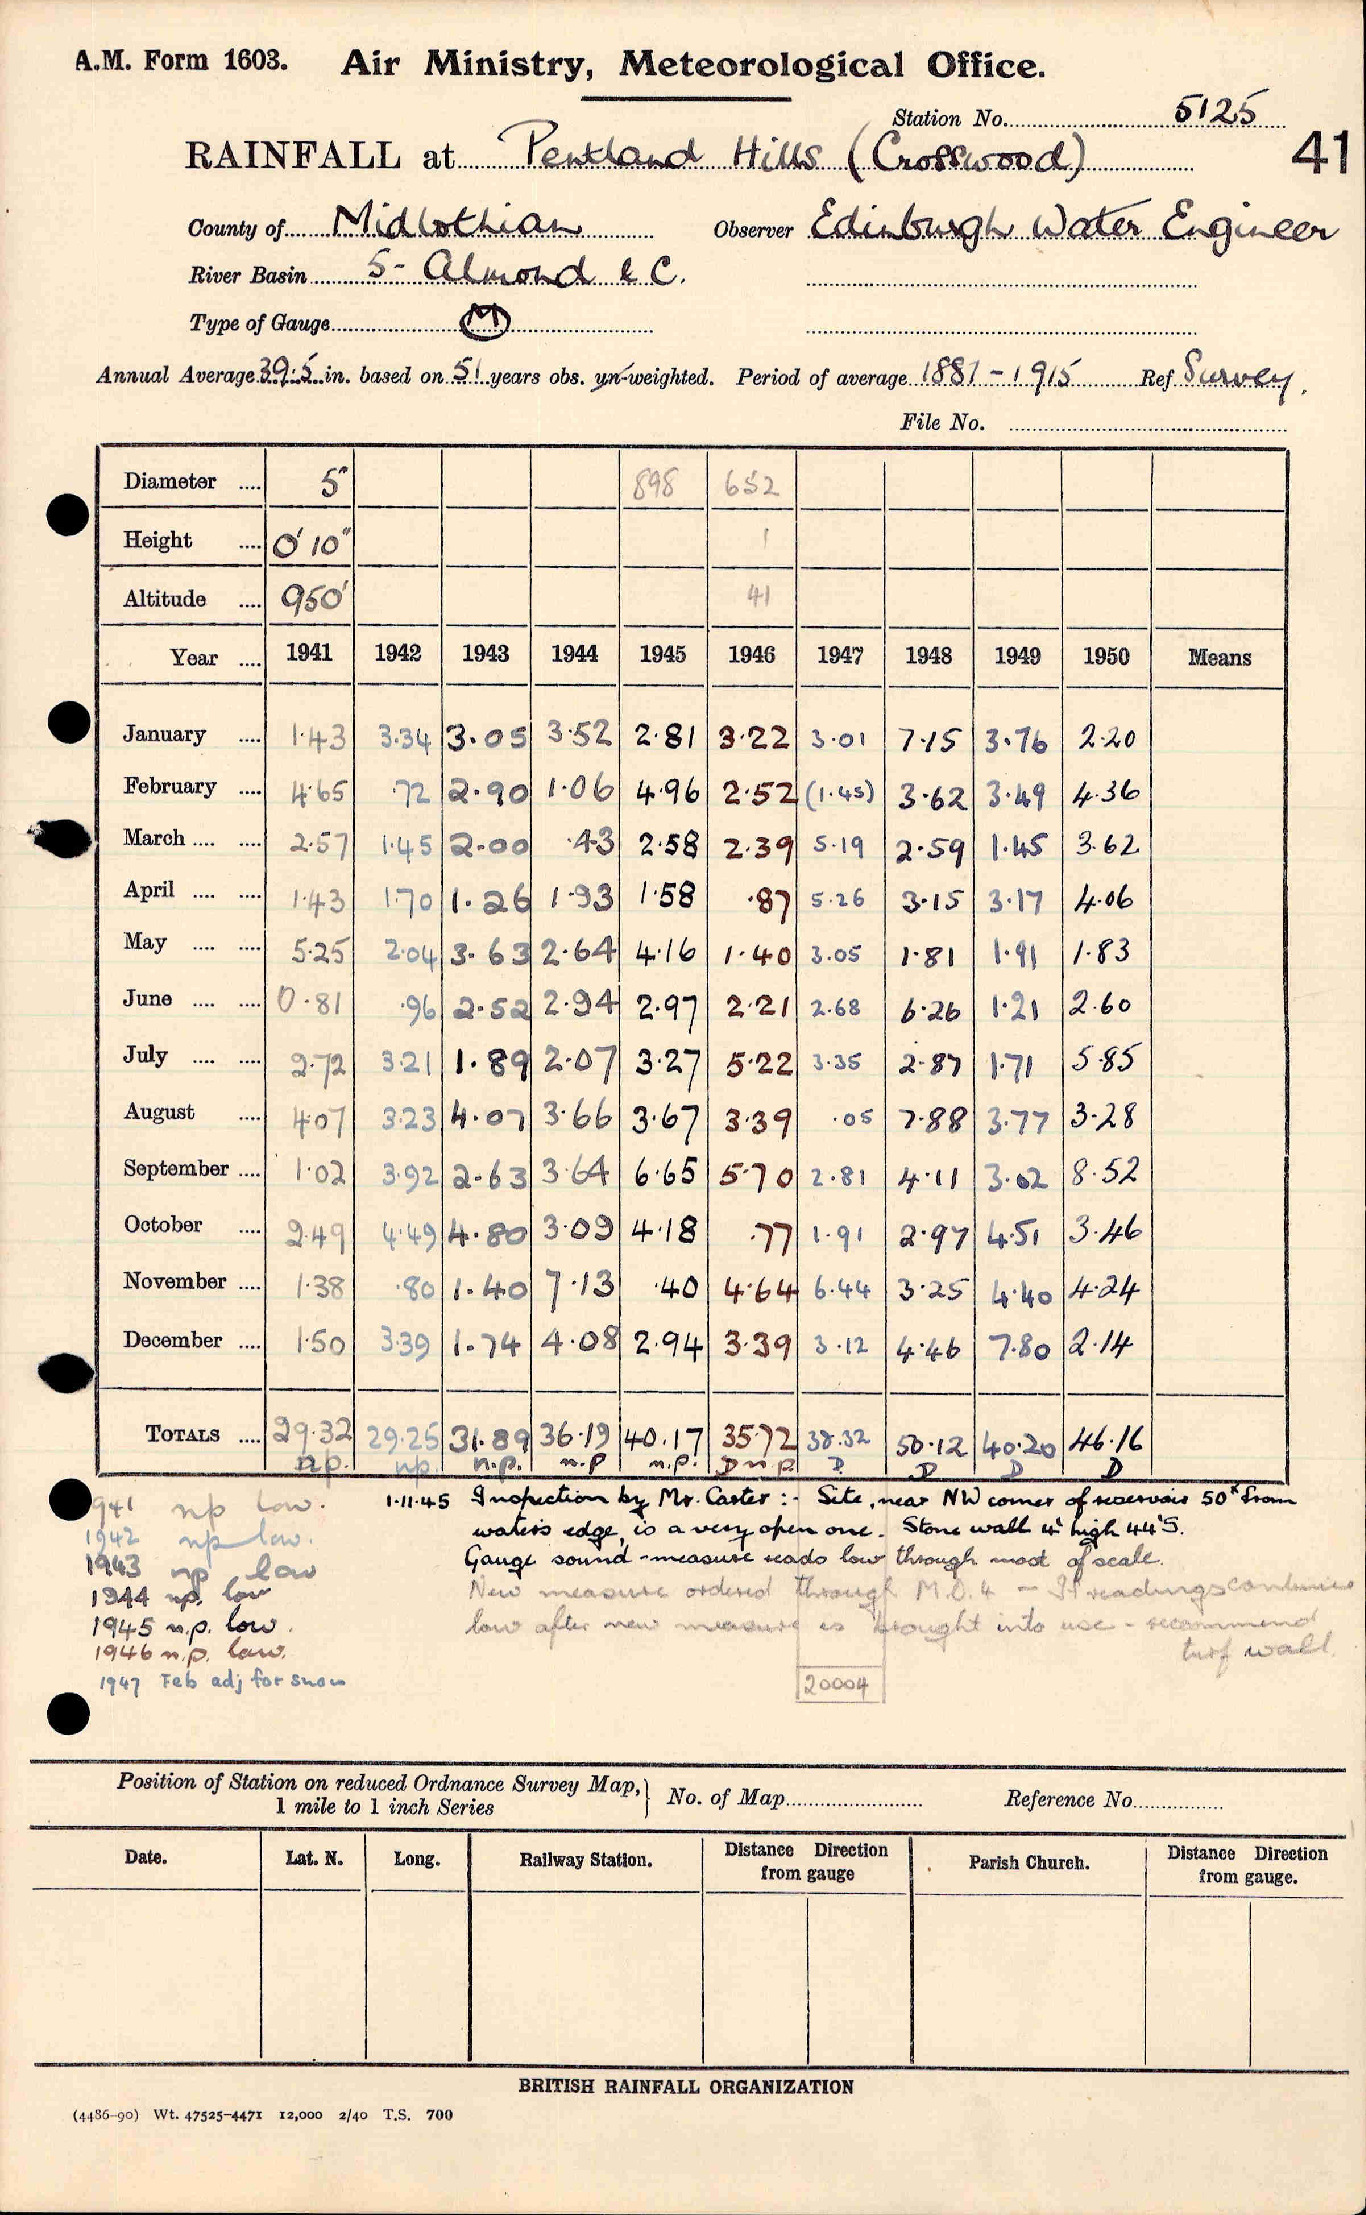 A.M. Form 1603. Air Ministry, Meteorological Office.
Station No. 5125
41
RAINFALL at Pentland Hills (Crosswood)
County of Midlothian Observer Edinburgh Water Engineer
River Basin 5- Almond &C.
Type of Gauge M
Annual Average 39.5 in. based on 51 years obs. un-weighted. Period of average 1881-1915 Ref Survey.
File No.
Diameter .... 5" 898 652
Height .... 0' 10" 1
Altitude .... 950' 41
Year .... 1941 1942 1943 1944 1945 1946 1947 1948 1949 1950 Means
January .... 1.43 3.34 3.05 3.52 2.81 3.22 3.01 7.15 3.76 2.20
February .... 4.65 .72 2.90 1.06 4.96 2.52 (1.45) 3.62 3.49 4.36
March .... .... 2.57 1.45 2.00 .43 2.58 2.39 5.19 2.59 1.45 3.62
April .... .... 1.43 1.70 1.26 1.93 1.58 .87 5.26 3.15 3.17 4.06
May .... .... 5.25 2.04 3.63 2.64 4.16 1.40 3.05 1.81 1.91 1.83
June .... .... 0.81 .96 2.52 2.94 2.97 2.21 2.68 6.26 1.21 2.60
July .... .... 2.72 3.21 1.89 2.07 3.27 5.22 3.35 2.87 1.71 5.85
August .... 4.07 3.23 4.07 3.66 3.67 3.39 .05 7.88 3.77 3.28
September .... 1.02 3.92 2.63 3.64 6.65 5.70 2.81 4.11 3.02 8.52
October .... 2.49 4.49 4.80 3.09 4.18 .77 1.91 2.97 4.51 3.46
November .... 1.38 .80 1.40 7.13 .40 4.64 6.44 3.25 4.40 4.24
December .... 1.50 3.39 1.74 4.08 2.94 3.39 3.12 4.46 7.80 2.14
TOTALS .... 29.32 29.25 31.89 36.19 40.17 35.72 38.32 50.12 40.20 46.16
n.p. n.p. n.p. n.p n.p. D n p. D D D D
1941 np low.
1942 np low.
1943 np low
1944 np. low
1945 n.p. low.
1946 n.p. low.
1947 Feb adj for snow
1.11.45 Inspection by Mr. Carter :- Site, near NW corner of reservoir 50x from
water's edge, is a very open one. Stone wall 4' high 44'S.
Gauge sound - measure reads low through most of scale.
New measure ordered through M.O.4 - If readings continue
low after new measure is brought into use - recommend
turf wall.
20004
Position of Station on reduced Ordnance Survey Map,
1 mile to 1 inch Series
No. of Map Reference No.
Date. Lat. N. Long. Railway Station. Distance Direction from gauge Parish Church. Distance Direction from gauge.
BRITISH RAINFALL ORGANIZATION
(4486-90) Wt. 47525-4471 12,000 2/40 T.S. 700